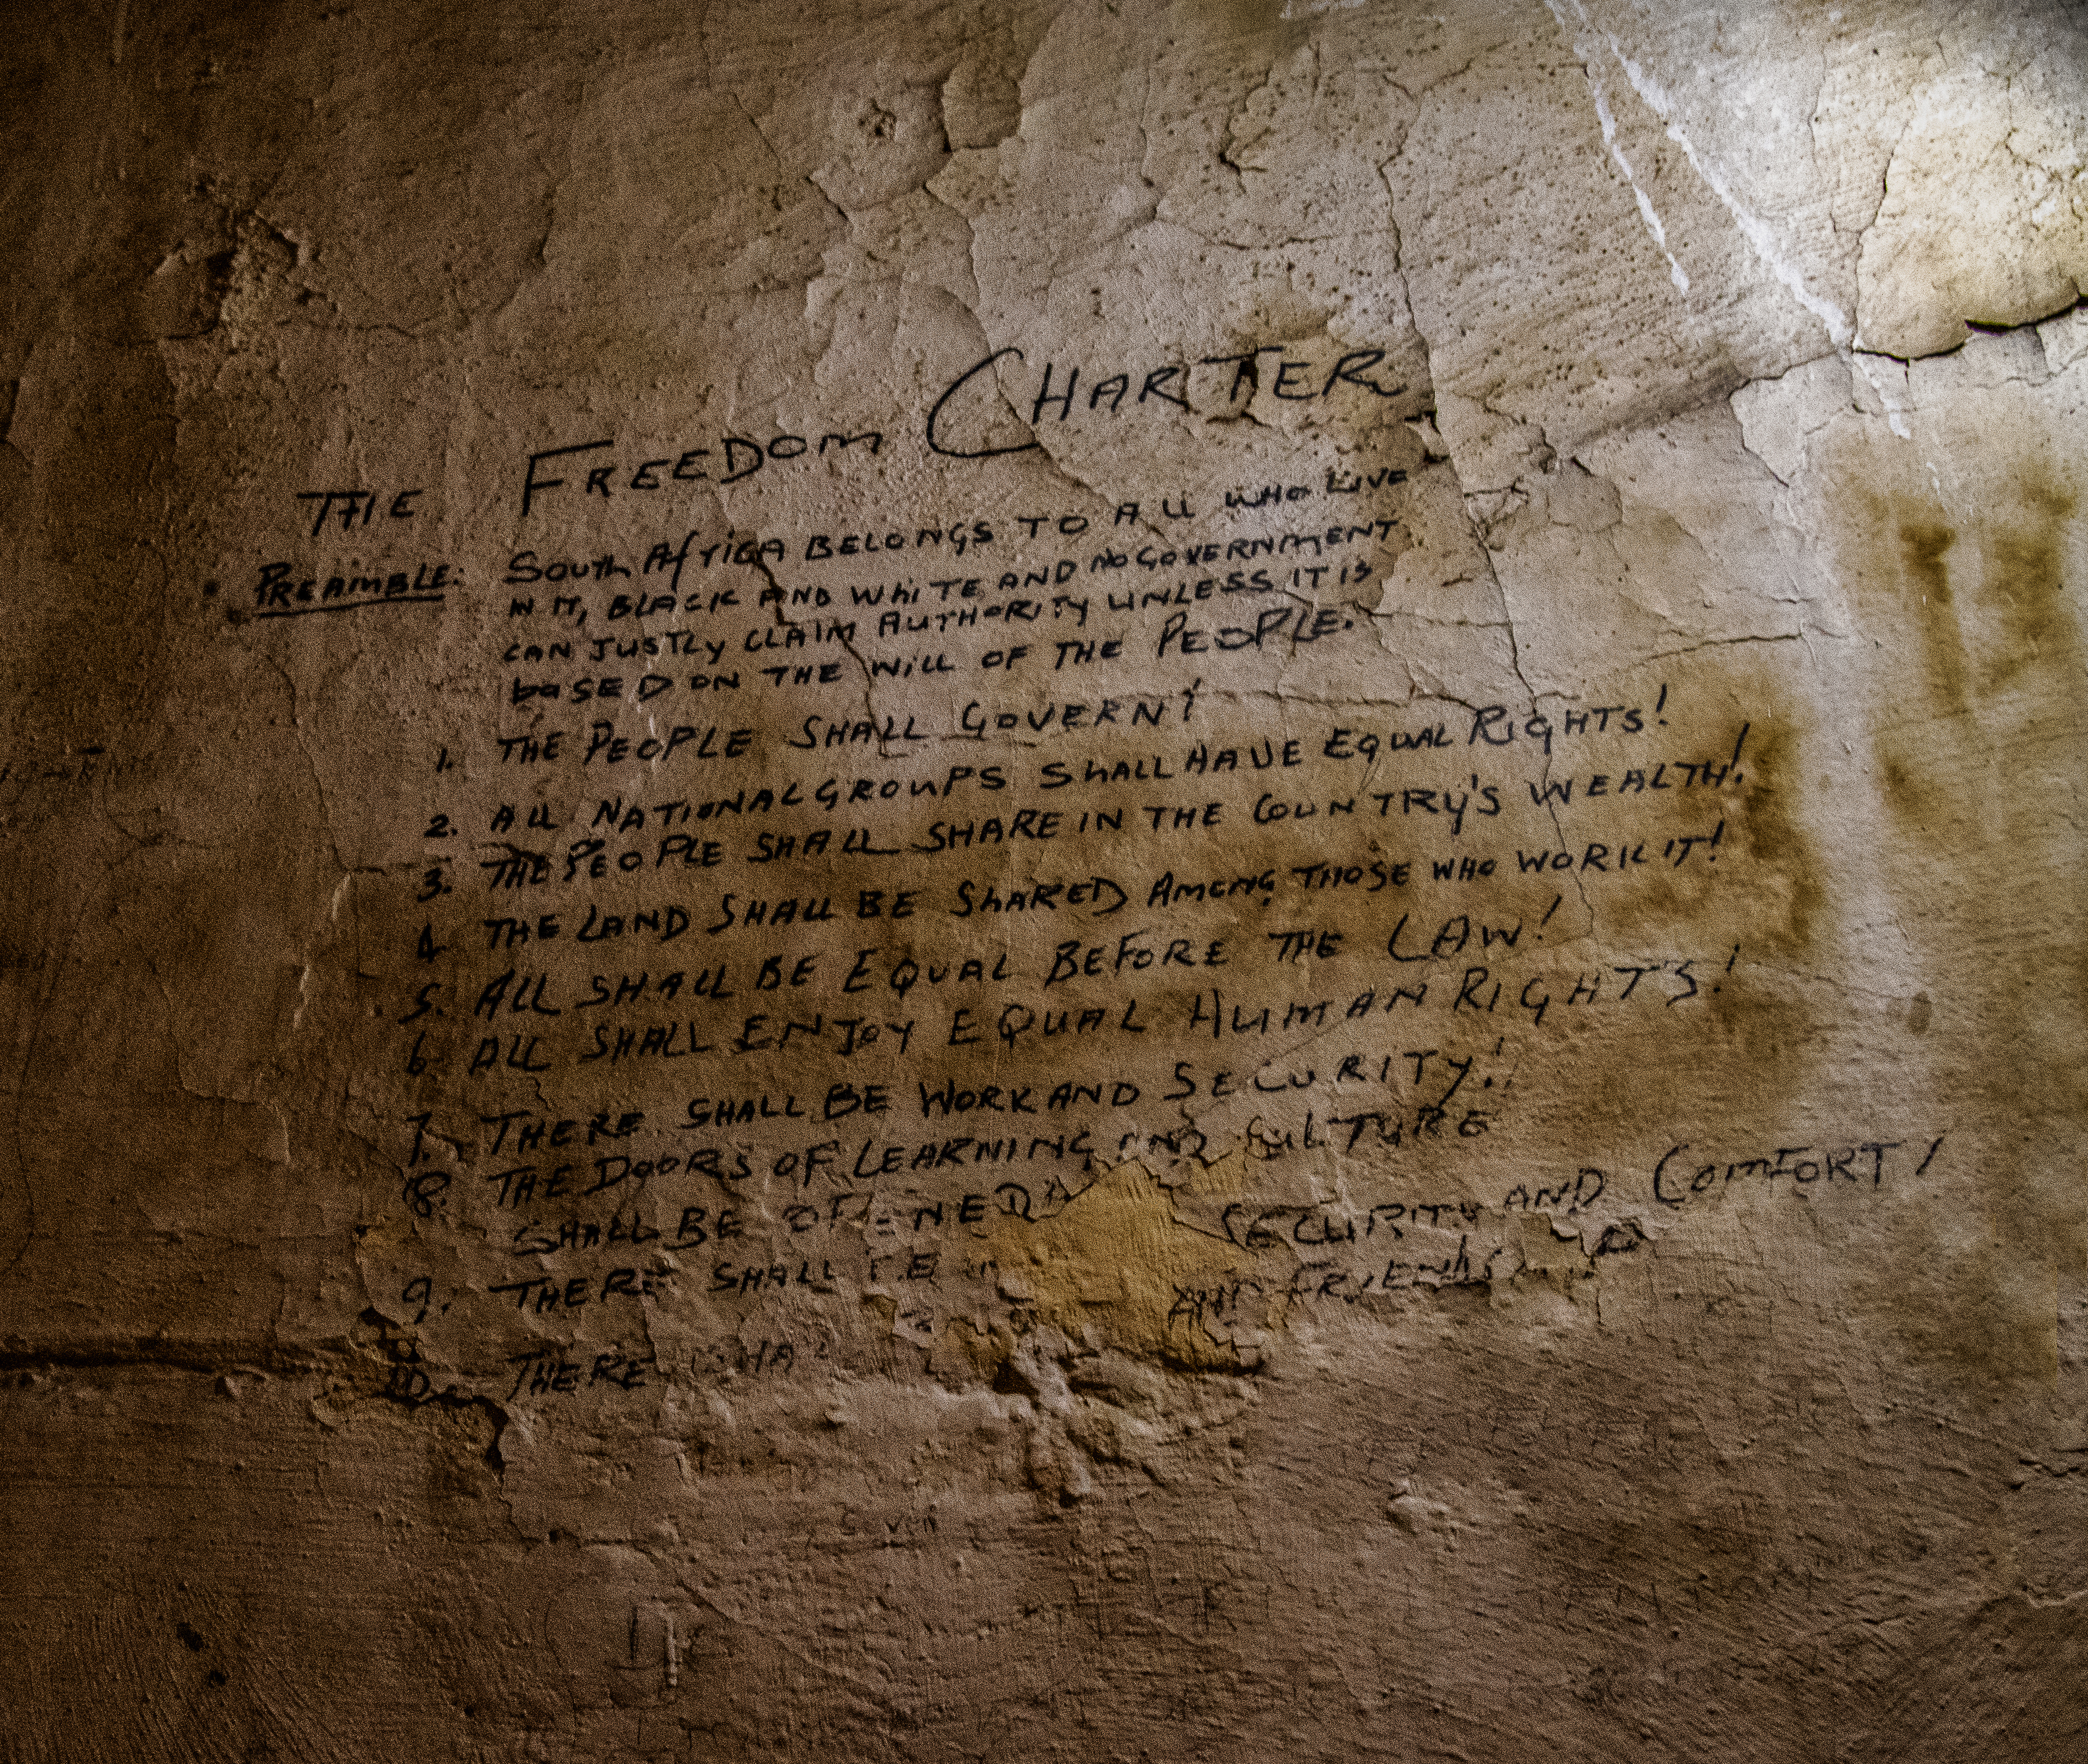 THE FREEDOM CHARTER
PREAMBLE: South Africa BELONGS TO All WHO LIVE
IN IT, BLACK AND WhiTE AND NO GOVERNMENT
CAN JUSTLY CLAIM AUTHORITY UNLESS IT IS
baSED ON THE Will OF THE PEOPLE.
1. THE PEOPLE SHALL GOVERN!
2. All NATIONAL GROUPS ShALL HAVE EQUAL RIGHTS!
3. THE PEOPLE SHALL SHARE IN THE COUNTRY'S WEALTH!
4. THE LAND SHAll BE ShARED AMONG THOSE WHO WORK IT!
5. All SHALL BE EQUAL BEFORE THE LAW!
6. All SHALL ENJOY EQUAL HUMAN RIGHTS!
7. THERE SHALL BE WORK AND SECURITY!
8. THE DOORS OF LEARNING AND CULTURE
SHALL BE OPENED
9. THERE SHALL BE SECURITY AND COMFORT!
10. THERE SHA AND FRIENDS